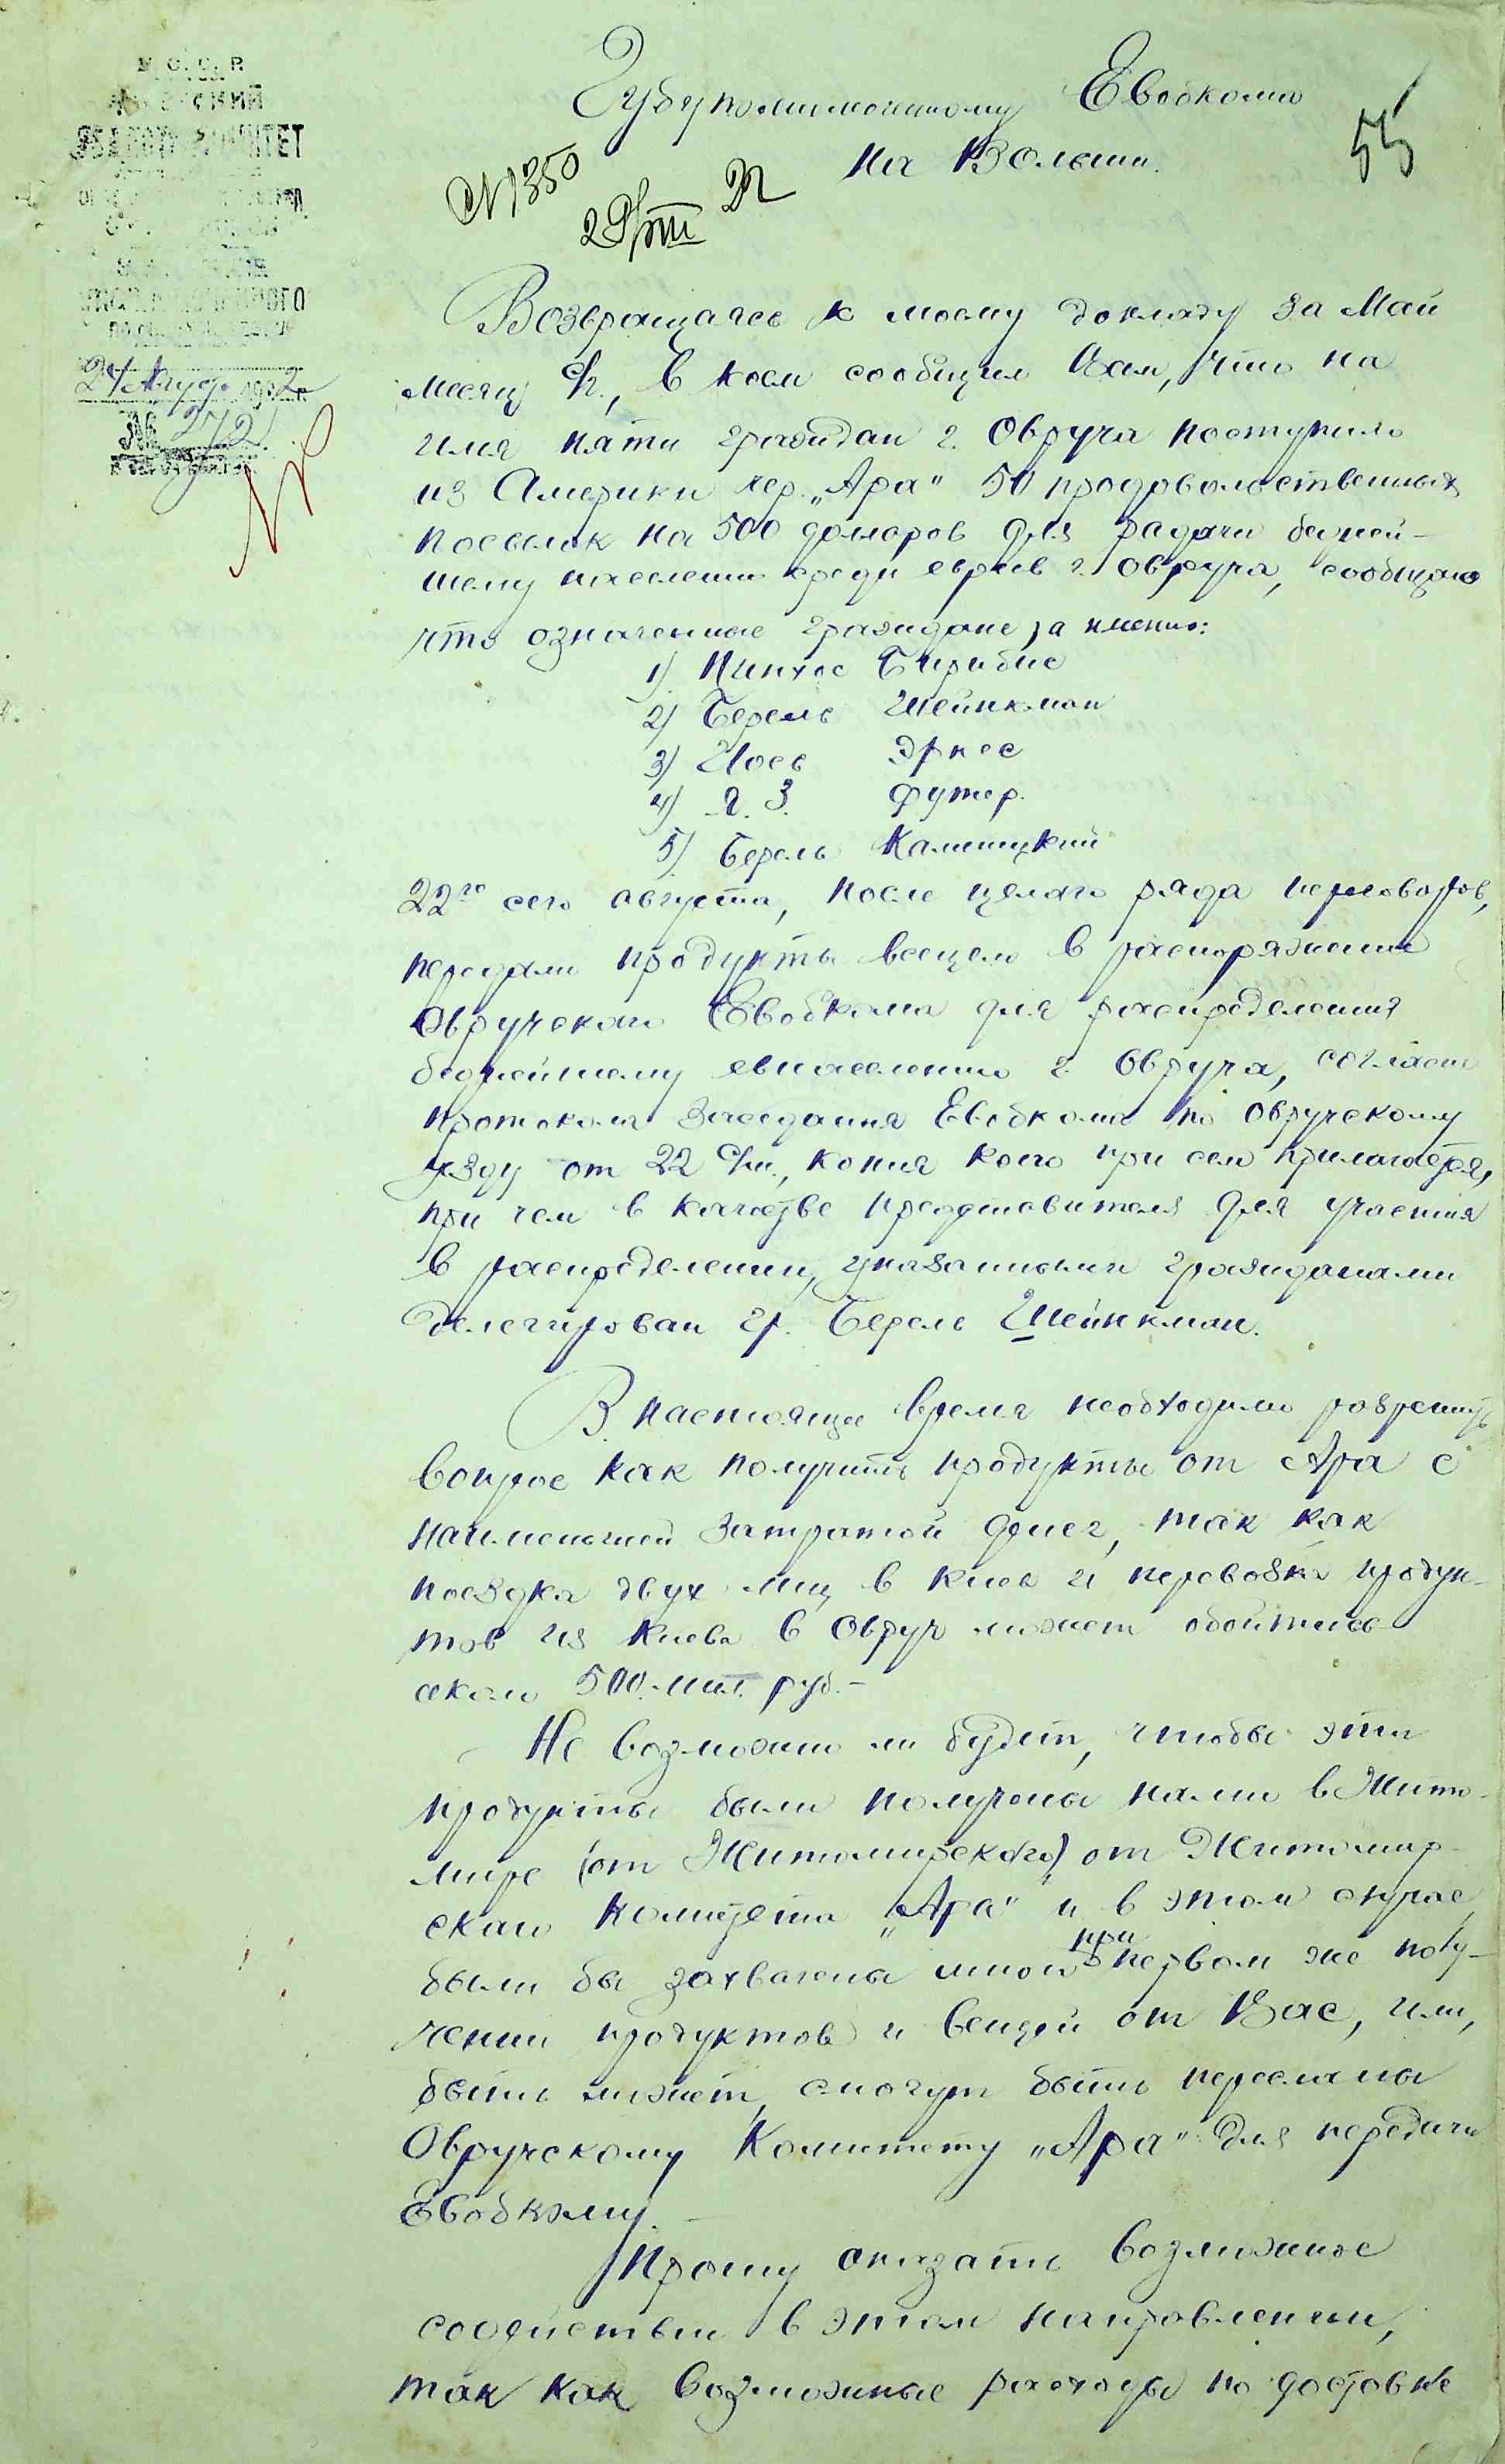 У.С.С.Р.
КОМИТЕТ
24 Август 1922 г.
№ 272
Губуполномоченному Евобкома
на Волыни.
55
№ 1350
29/VIII 22
Возвращаясь к моему докладу за Май
месяц с/г., в коем сообщил Вам, что на
имя пяти граждан г. Овруча поступило
из Америки чер. „Ара" 50 продовольственных
посылок на 500 долларов для раздачи бедней-
шему населению среди евреев г. Овруча, сообщаю
что означенные граждане, а именно:
1) Пинхос Бирибис
2) Берель Шейнкман
3) Иось Эркес
4) Я. З. Футер.
5) Берель Калиницкий
22го сего августа, после целаго ряда переговоров,
передали продукты всецело в распоряжение
Овручскаго Евобкома для распределения
беднейшему евнаселению г. Овруча, согласно
протокола Заседания Евобкома по Овручскому
уезду от 22 с/м., копия коего при сем прилагается,
при чем в качестве представителя для участия
в распределении, указанными гражданами
делегирован гр. Берель Шейнкман.
В настоящее время необходимо разрешить
вопрос как получить продукты от Ара с
наименьшей затратой денег, так как
поездка двух лиц в Киев и перевозка продук-
тов из Киева в Овруч может обойтись
около 500 мил. руб. -
Не возможно ли будет, чтобы эти
продукты были получены нами в Жито-
мире (от Житомирскаго) от Житомир-
скаго комитета „Ара" и в этом случае
были бы захвачены мной при первом же полу-
чении продуктов и вещей от Вас, или,
быть может, смогут быть пересланы
Овручскому Комитету „Ара" для передачи
Евобкому. -
Прошу оказать возможное
содействие в этом направлении,
так как возможные расходы по доставке